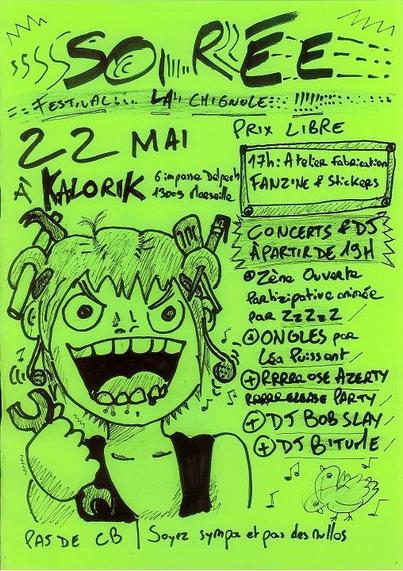 SOIRÉE
FESTIVAL LA CHIGNOLE
22 MAI
PRIX LIBRE
À KALORIK
6 impasse Delpech
13003 Marseille
17h: Atelier fabrication
FANZINE & Stickers
CONCERTS & DJ
À PARTIR DE 19H
Zène Ouverte
Participative animée
par ZzZzZ
ONGLES par
Léa Puissant
+ RRRRROSE AZERTY
RRRRRELEASE PARTY
+ DJ BOB SLAY
+ DJ BITUME
PAS DE CB | Soyez sympa et pas des nullos